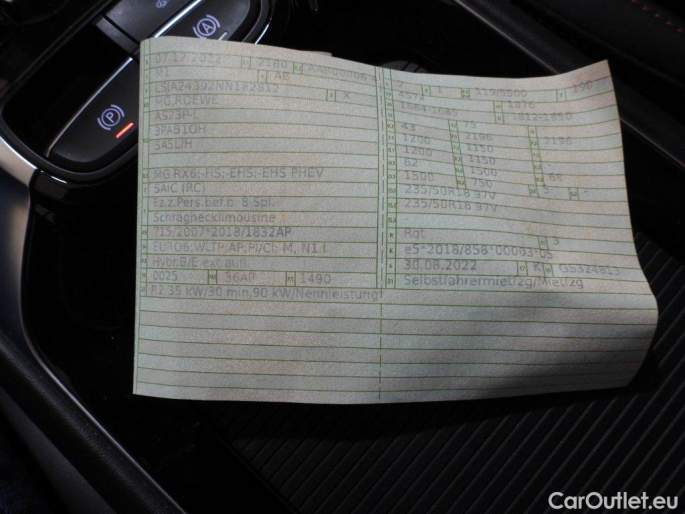 07.12.2022 2180
M1 AE
X
MG ROEWE
AS23P-L
3PA51OH
5A5L7H
MG RX6; -HS; -EHS; -EHS PHEV
SAIC (RC)
Fz.z.Pers.bef.b. 8 Spl.
Schräghecklimousine
715/2007*2018/1832AP
EURO6;WLTP;AP;PI/CI; M, N1 I
Hybr.B/E ext.aufl.
0025 1490
P.2:35 kW/30 min,90 kW/Nennleistung
2 1 119/5500 190
4574 1876
1664-1685 1812-1850
43 75
1200 2196 2196
1200 1150
62 1150
1500 1500
750 5 -
235/50R18 97V
235/50R18 97V
Rot 3
e5*2018/858*00003*05
30.08.2022 K
Selbstfahrermietfzg/Mietfzg
CarOutlet.eu